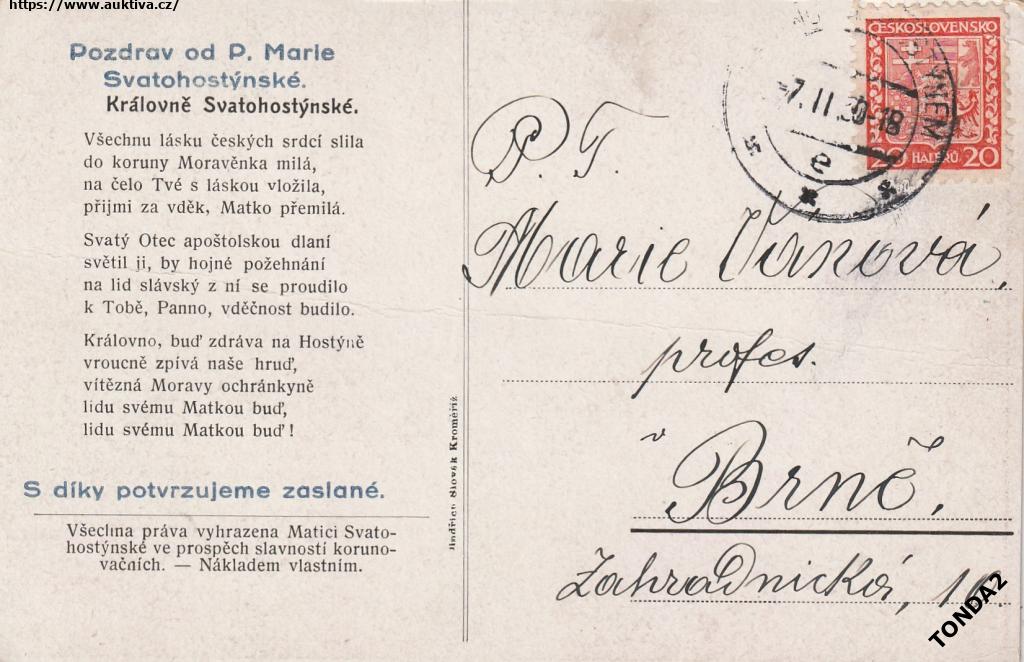 https://www.auktiva.cz/
Pozdrav od P. Marie
Svatohostýnské.
Královně Svatohostýnské.
Všechnu lásku českých srdcí slila
do koruny Moravěnka milá,
na čelo Tvé s láskou vložila,
přijmi za vděk, Matko přemilá.
Svatý Otec apoštolskou dlaní
světil ji, by hojné požehnání
na lid slávský z ní se proudilo
k Tobě, Panno, vděčnost budilo.
Královno, buď zdráva na Hostýně
vroucně zpívá naše hruď,
vítězná Moravy ochránkyně
lidu svému Matkou buď,
lidu svému Matkou buď!
S díky potvrzujeme zaslané.
Všechna práva vyhrazena Matici Svato-
hostýnské ve prospěch slavností koruno-
vačních. — Nákladem vlastním.
Jindřich Slovák Kroměříž
ČESKOSLOVENSKO
20 HALÉŘŮ 20
7.II.30-18
e
P. T.
Marie Vánová,
profes.
v
Brně,
Zahradnická,
TONDA2